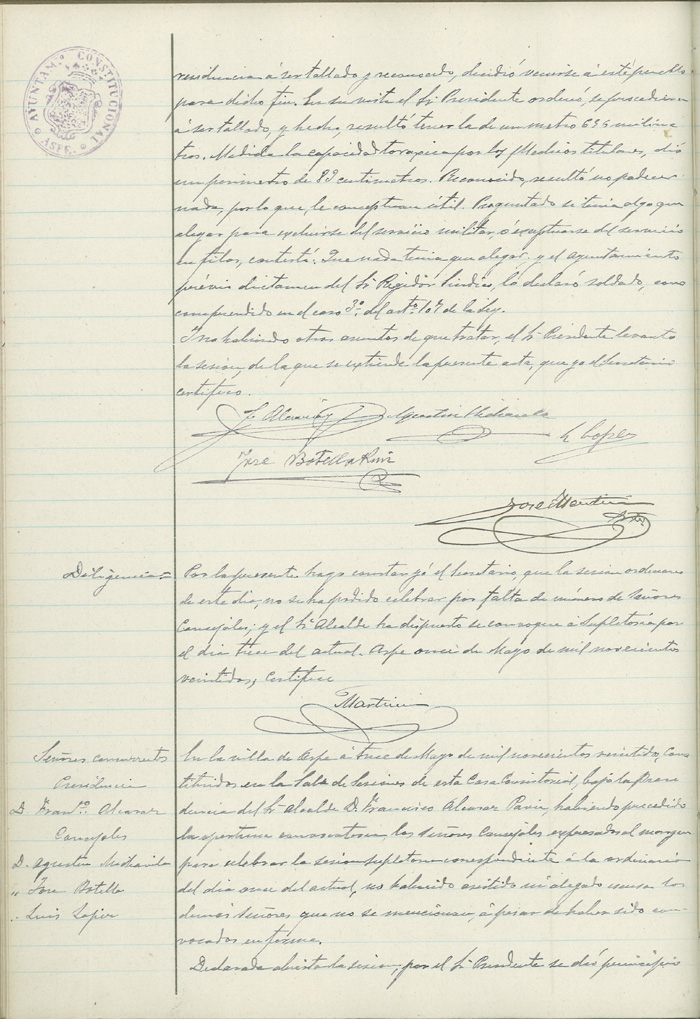 AYUNTAM.º CONSTITUCIONAL
ASPE.
residencia á ser tallado y reconocido, decidió venirse á este pueblo
para dicho fin. En su vista el Sr. Presidente ordenó, se procediera
á ser tallado, y hecho, resultó tener la de un metro 656 milíme
tros. Medida la capacidad toraxica por los Medicos titulares, dió
un perimetro de 89 centimetros. Reconocido, resultó no padecer
nada, por lo que, le conceptuan útil. Preguntado si tenia algo que
alegar para excluirse del servicio militar, ó exceptuarse del servicio
en filas, contestó: Que nada tenia que alegar, y el Ayuntamiento
prévio dictamen del Sr. Regidor Sindico, lo declaró soldado, como
comprendido en el caso 3º del artº 107 de la ley.
Y no habiendo otros asuntos de que tratar, el Sr. Presidente levantó
la sesion de la que se extiende la presente acta, que yo el Secretario
certifico.
F. Alcaraz
Agustin
L Lopez
Jose Botella Ruiz
Jose Martinez
Diligencia =
Por la presente hago constar yó el Secretario, que la sesion ordinaria
de este dia, no se ha podido celebrar por falta de número de Señores
Concejales; y el Sr. Alcalde ha dispuesto se convoque á Supletoria por
el dia trece del actual. Aspe once de Mayo de mil novecientos
veintidos, Certifico
Martinez
Señores concurrentes
Presidencia
D. Franº. Alcaraz
Concejales
D. Agustin
" Jose Botella
" Luis Lopez
En la villa de Aspe á trece de Mayo de mil novecientos veintidos, Cons
tituidos en la Sala de Sesiones de esta Casa Consistorial, bajo la Presi
dencia del Sr. Alcalde D. Francisco Alcaraz Pavia, habiendo precedido
la oportuna convocatoria, los Señores Concejales expresados al margen
para celebrar la sesion supletoria correspondiente á la ordinaria
del dia once del actual, no habiendo asistido ni alegado excusa los
demás Señores que no se mencionan, á pesar de haber sido con
vocados en forma.
Declarada abierta la sesion, por el Sr. Presidente se dió principio